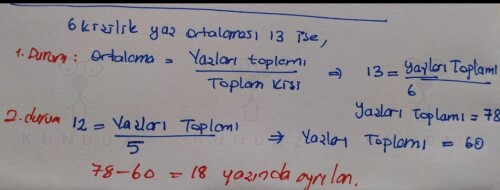 6 kişilik yaş ortalaması 13 ise,
1. Durum: Ortalama = Yaşları toplamı / Toplam kişi ⇒ 13 = Yaşları Toplamı / 6
Yaşları Toplamı = 78
2. durum 12 = Yaşları Toplamı / 5 → Yaşları Toplamı = 60
78-60 = 18 yaşında ayrılan.